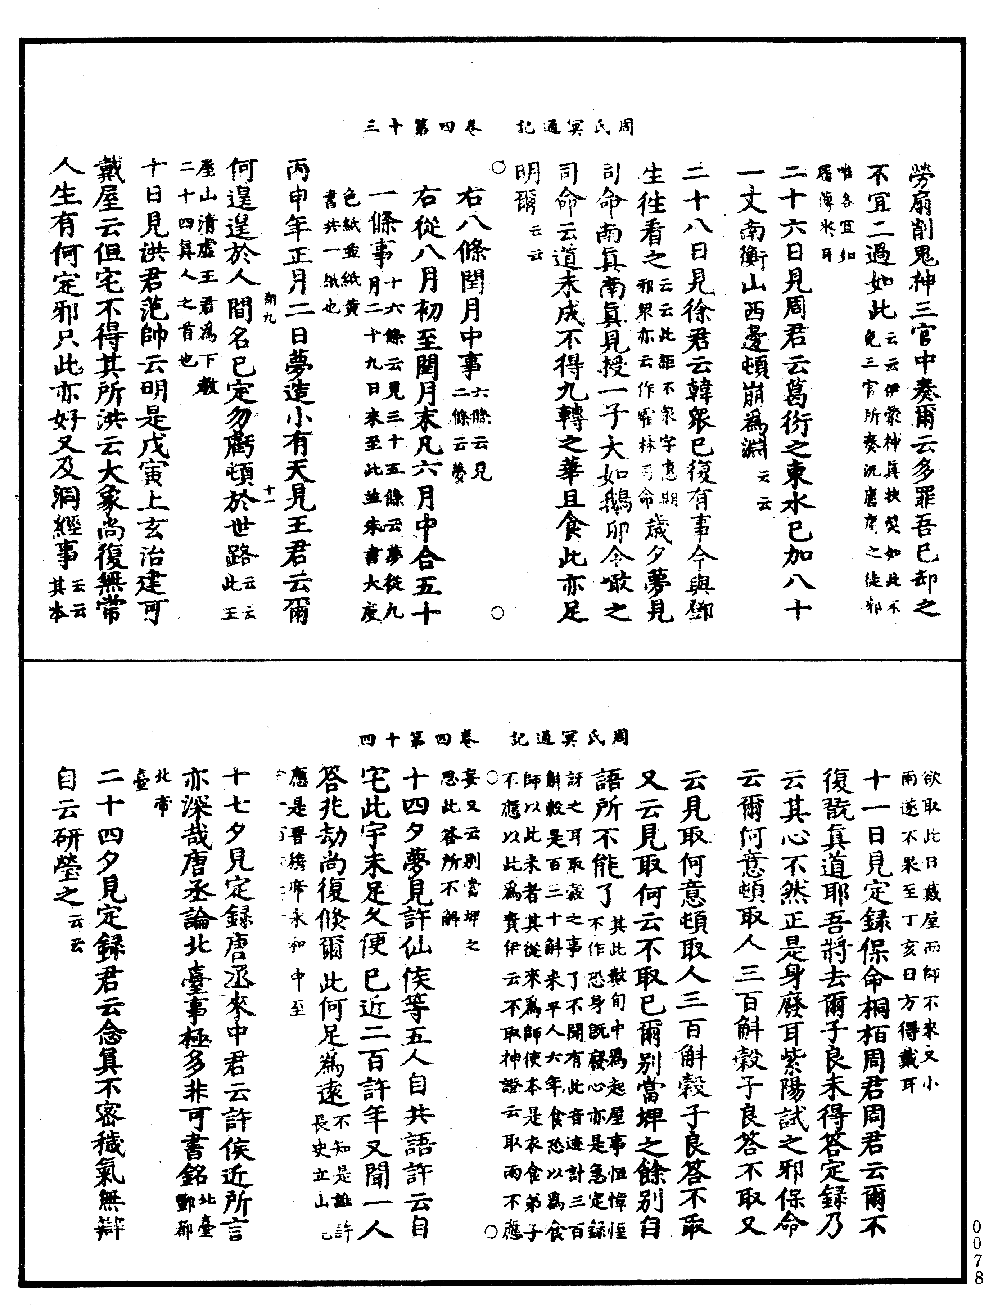 周氏冥通記　卷四第十三
勞扇削鬼神三官中奏爾云多罪吾已却之
不宜二過如此云云伊蒙神真扶獎如此不免三官所奏況庸庸之徒邪
唯各宜如履薄氷耳
二十六日見周君云葛衍之東水已加八十
一丈南衡山西邊頓崩為淵云云
二十八日見徐君云韓衆已復有事今與鄧
生往看之云云此鄧不衆字意期邪衆亦云作霍林司命歲夕夢見
司命南真南真見授一子大如鵝卵令噉之
司命云道未成不得九轉之華且食此亦足
明爾云云
○　○
右八條閏月中事六條云見二條云夢
右從八月初至閏月末凡六月中合五十
一條事十六條云見三十五條云夢從九月二十九日來至此並朱書大度
色紙並紙黄書共一紙也
丙申年正月二日夢造小有天見王君云爾
何遑遑於人間名已定勿䕶頓於世路云云此王
屋山清虛王君為下教二十四真人之首也
十日見洪君范帥云明是戊寅上玄治建可
戴屋云但宅不得其所洪云大象尚復無常
人生有何定邪只此亦好又及洞經事云云其本
周氏冥通記　卷四第十四
欲取此日戴屋而師不來又小
雨遂不果至丁亥日方得戴耳
十一日見定錄保命桐栢周君周君云爾不
復翫真道耶吾將去爾子良未得答定錄乃
云其心不然正是身廢耳紫陽試之邪保命
云爾何意頓取人三百斛穀子良答不取又
云見取何意頓取人三百斛穀子良答不取
又云見取何云不取已爾別當埤之餘別自
語所不能了其此數旬中為起屋事恒惸恇不作恐身既廢心亦是怠定錄
訝之耳取穀之事了不聞有此音迹計三百
斛穀是百二十斛米平人六年食恐以為食
師以此米者其從來為師使本是衣食弟子
不應以此為責伊云不取神證云取兩不應
○　○
妄又云別當埤之
思此答所不解
十四夕夢見許仙侯等五人自共語許云自
宅此宇未足久便已近二百許年又聞一人
答兆劫尚復倏爾此何足為遠不知是誰許長史立山已
應是晉穆帝永和中至
十七夕見定錄唐丞來中君云許侯近所言
亦深哉唐丞論北臺事極多非可書銘北臺酆都
北帝臺
二十四夕見定錄君云念真不密穢氣無辯
自云研瑩之云云
0078